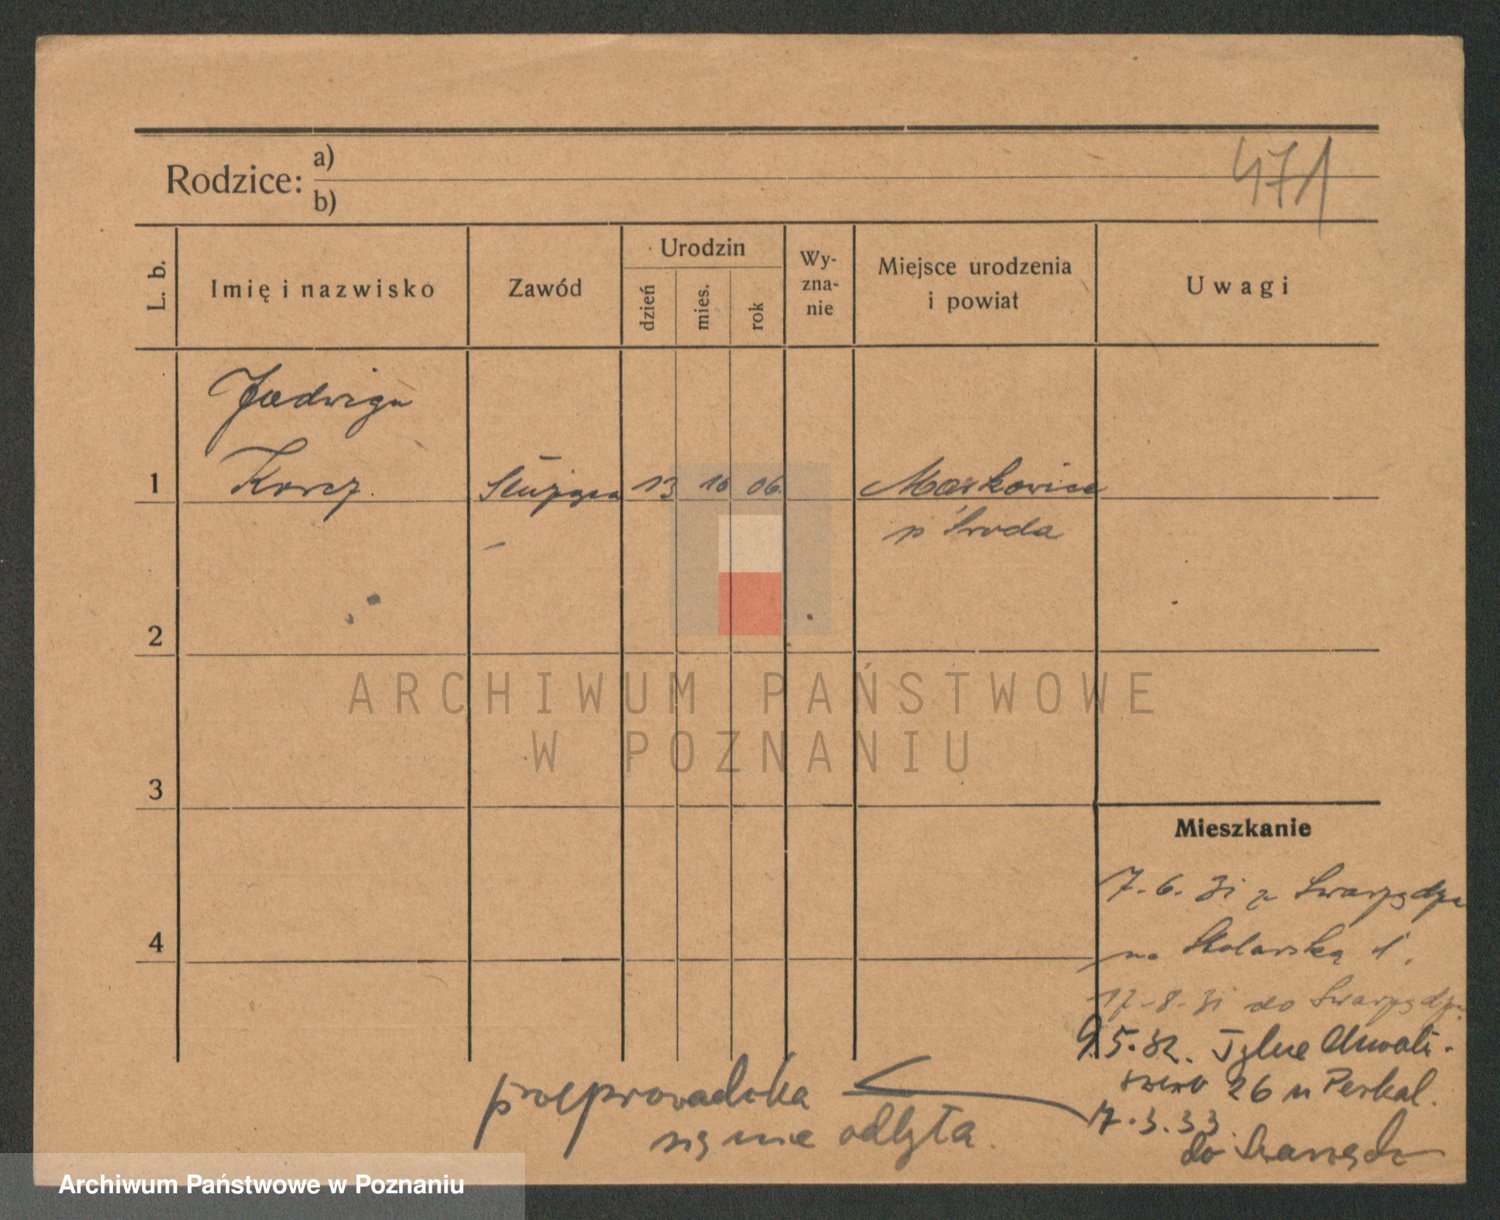 471
Rodzice: a)
b)
L. b.
Imię i nazwisko
Zawód
Urodzin
dzień
mies.
rok
Wy-
zna-
nie
Miejsce urodzenia
i powiat
Uwagi
Jadwiga
1 Korcz. Służąca 13 10 06 Markowice
p Środa
2
ARCHIWUM PAŃSTWOWE
W POZNANIU
3
Mieszkanie
7.6.31 z Swarzędza
4
na Stolarską 1.
17-8-31 do Swarzędza
9.5.32. Tylne Chwali-
szewo 26 u Perkal.
7.3.33.
do Swarzędz
przeprowadzka
się nie odbyła.
Archiwum Państwowe w Poznaniu